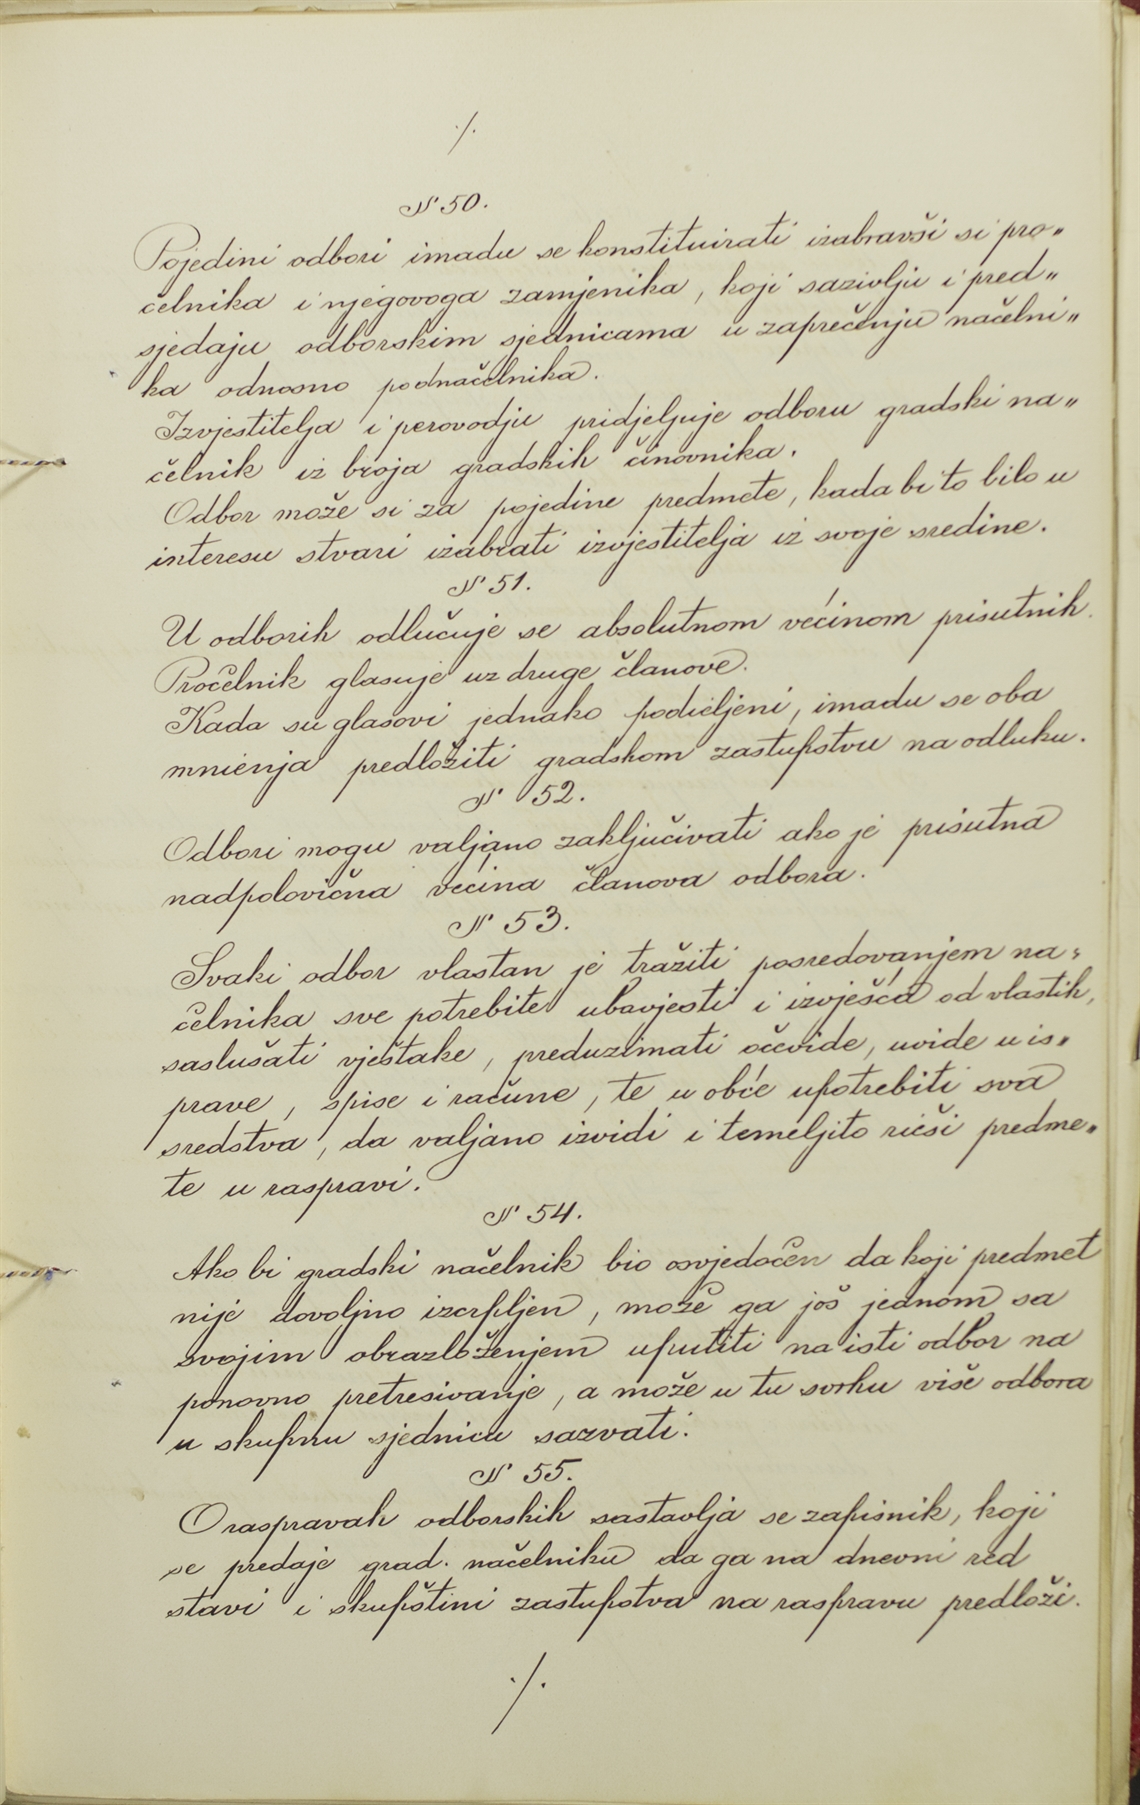 ./.
№ 50.
Pojedini odbori imadu se konstituirati izabravši si pro„
čelnika i njegovoga zamjenika, koji sazivlju i pred„
sjedaju odborskim sjednicama u zaprečenju načelni„
ka odnosno podnačelnika.
Izvjestitelja i perovodju pridjeljuje odboru gradski na„
čelnik iz broja gradskih činovnika.
Odbor može si za pojedine predmete, kada bi to bilo u
interesu stvari izabrati izvjestitelja iz svoje sredine.
№ 51.
U odborih odlučuje se absolutnom većinom prisutnih.
Pročelnik glasuje uz druge članove.
Kada su glasovi jednako podieljeni, imadu se oba
mnienja predložiti gradskom zastupstvu na odluku.
№ 52.
Odbori mogu valjano zaključivati ako je prisutna
nadpolovična većina članova odbora.
№ 53.
Svaki odbor vlastan je tražiti posredovanjem na„
čelnika sve potrebite ubavjesti i izvješća od vlastih,
saslušati vještake, preduzimati očevide, uvide u is„
prave, spise i račune, te u obće upotrebiti sva
sredstva, da valjano izvidi i temeljito rieši predme„
te u raspravi.
№ 54.
Ako bi gradski načelnik bio osvjedočen da koji predmet
nije dovoljno izcrpljen, može ga još jednom sa
svojim obrazloženjem uputiti na isti odbor na
ponovno pretresivanje, a može u tu svrhu više odbora
u skupnu sjednicu sazvati.
№ 55.
O raspravah odborskih sastavlja se zapisnik, koji
se predaje grad. načelniku da ga na dnevni red
stavi i skupštini zastupstva na raspravu predloži.
./.